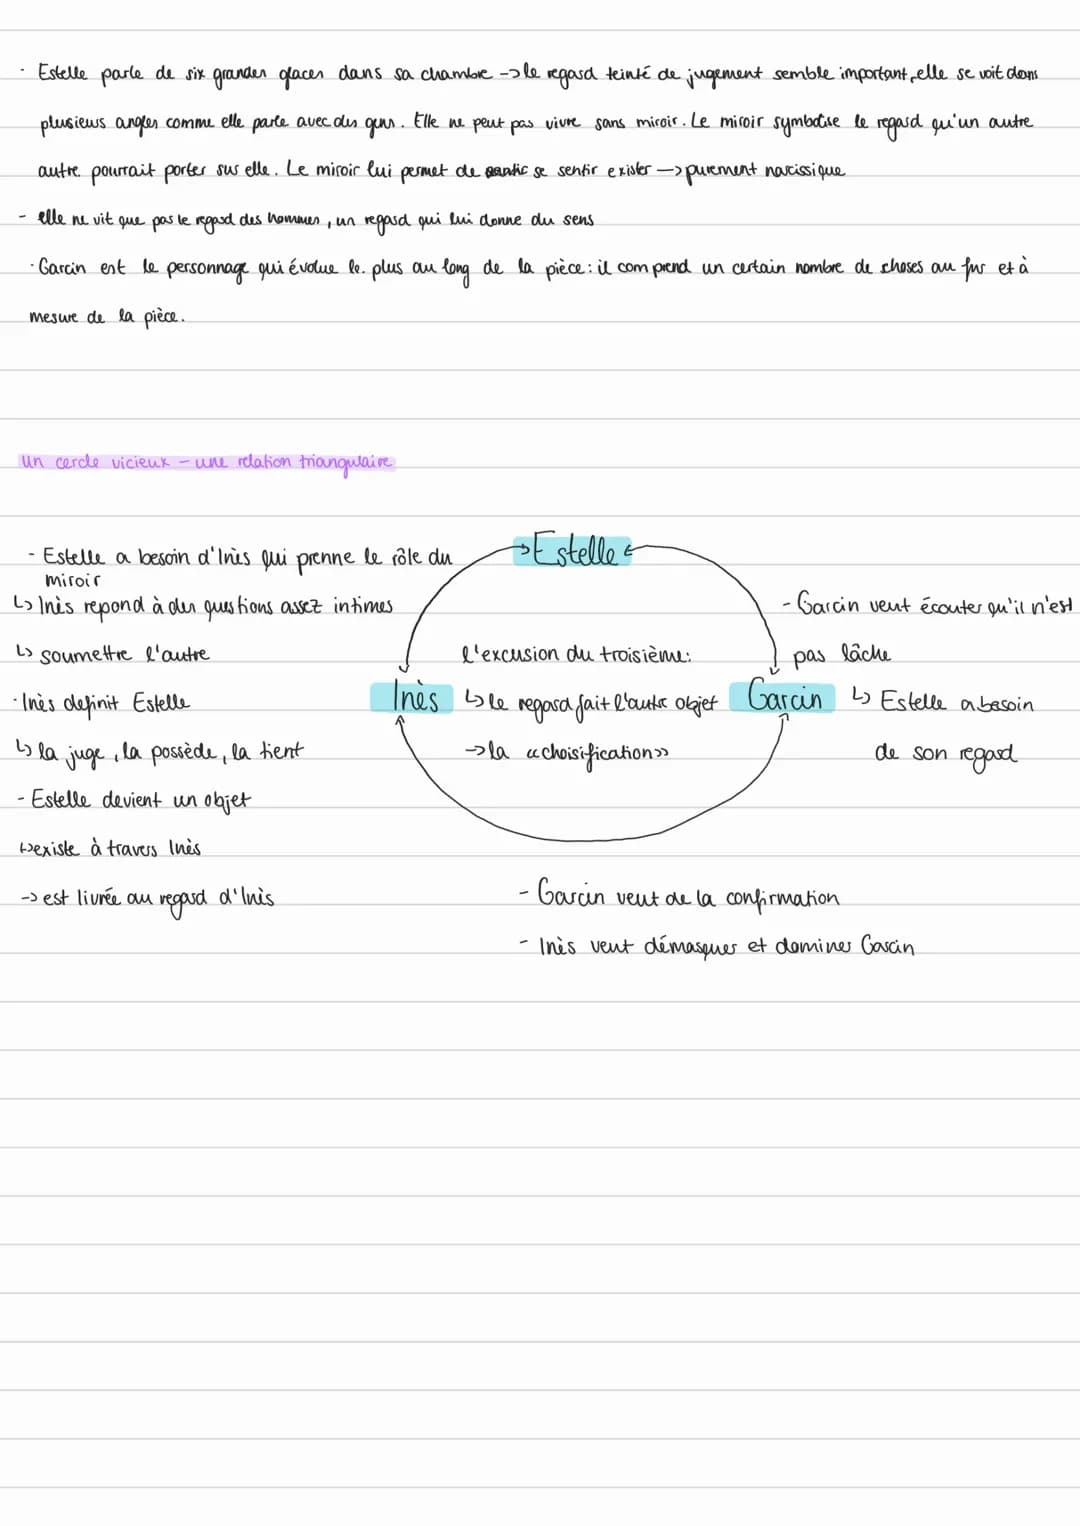 · Estelle parle de six grandes glaces dans sa chambre -> le regard teinté de jugement semble important, elle se voit dans
plusieurs angles comme elle parle avec des gens. Elle ne peut pas vivre sans miroir. Le miroir symbolise le regard qu'un autre
autre. pourrait porter sur elle. Le miroir lui permet de se sentir exister -> purement narcissique
- elle ne vit que pas le regard des hommes, un regard qui lui donne du sens
· Garcin est le personnage qui évolue le. plus au long de la pièce: il comprend un certain nombre de choses au fur et à
mesure de la pièce.
Un cercle vicieux - une relation triangulaire
Estelle
- Estelle a besoin d'Inès qui prenne le rôle du
miroir
↳ Inès repond à des questions assez intimes
↳ soumettre l'autre
· Inès definit Estelle
↳ la juge, la possède, la tient
- Estelle devient un objet
↳ existe à travers Inès
-> est livrée au regard d'Inès
Inès
l'excusion du troisième:
↳ le regard fait l'autre objet
-> la «choisification»
Garcin
- Garcin veut écouter qu'il n'est
pas lâche
↳ Estelle a besoin
de son regard
- Garcin veut de la confirmation
- Inès veut démasquer et dominer Garcin